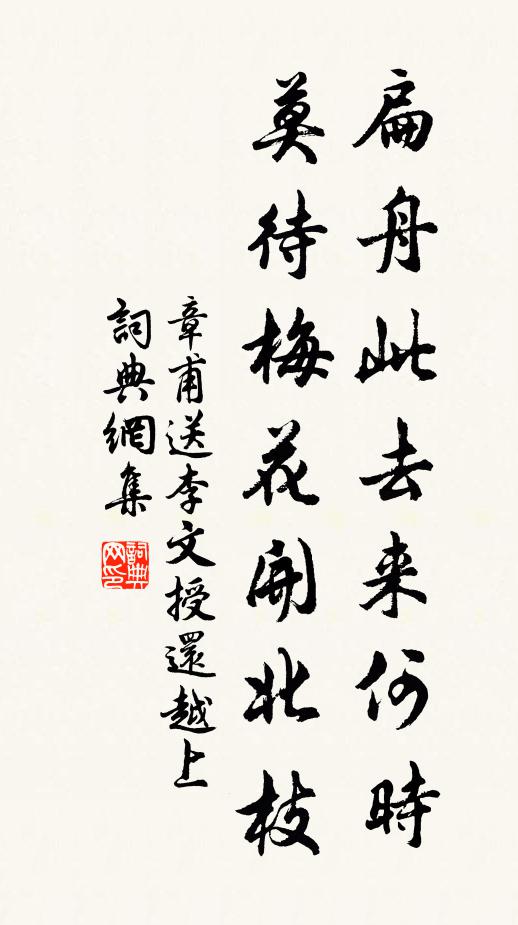 扁舟此去来何時
莫待梅花開北枝
章甫送李文授還越上
詞典網集
詞典网印